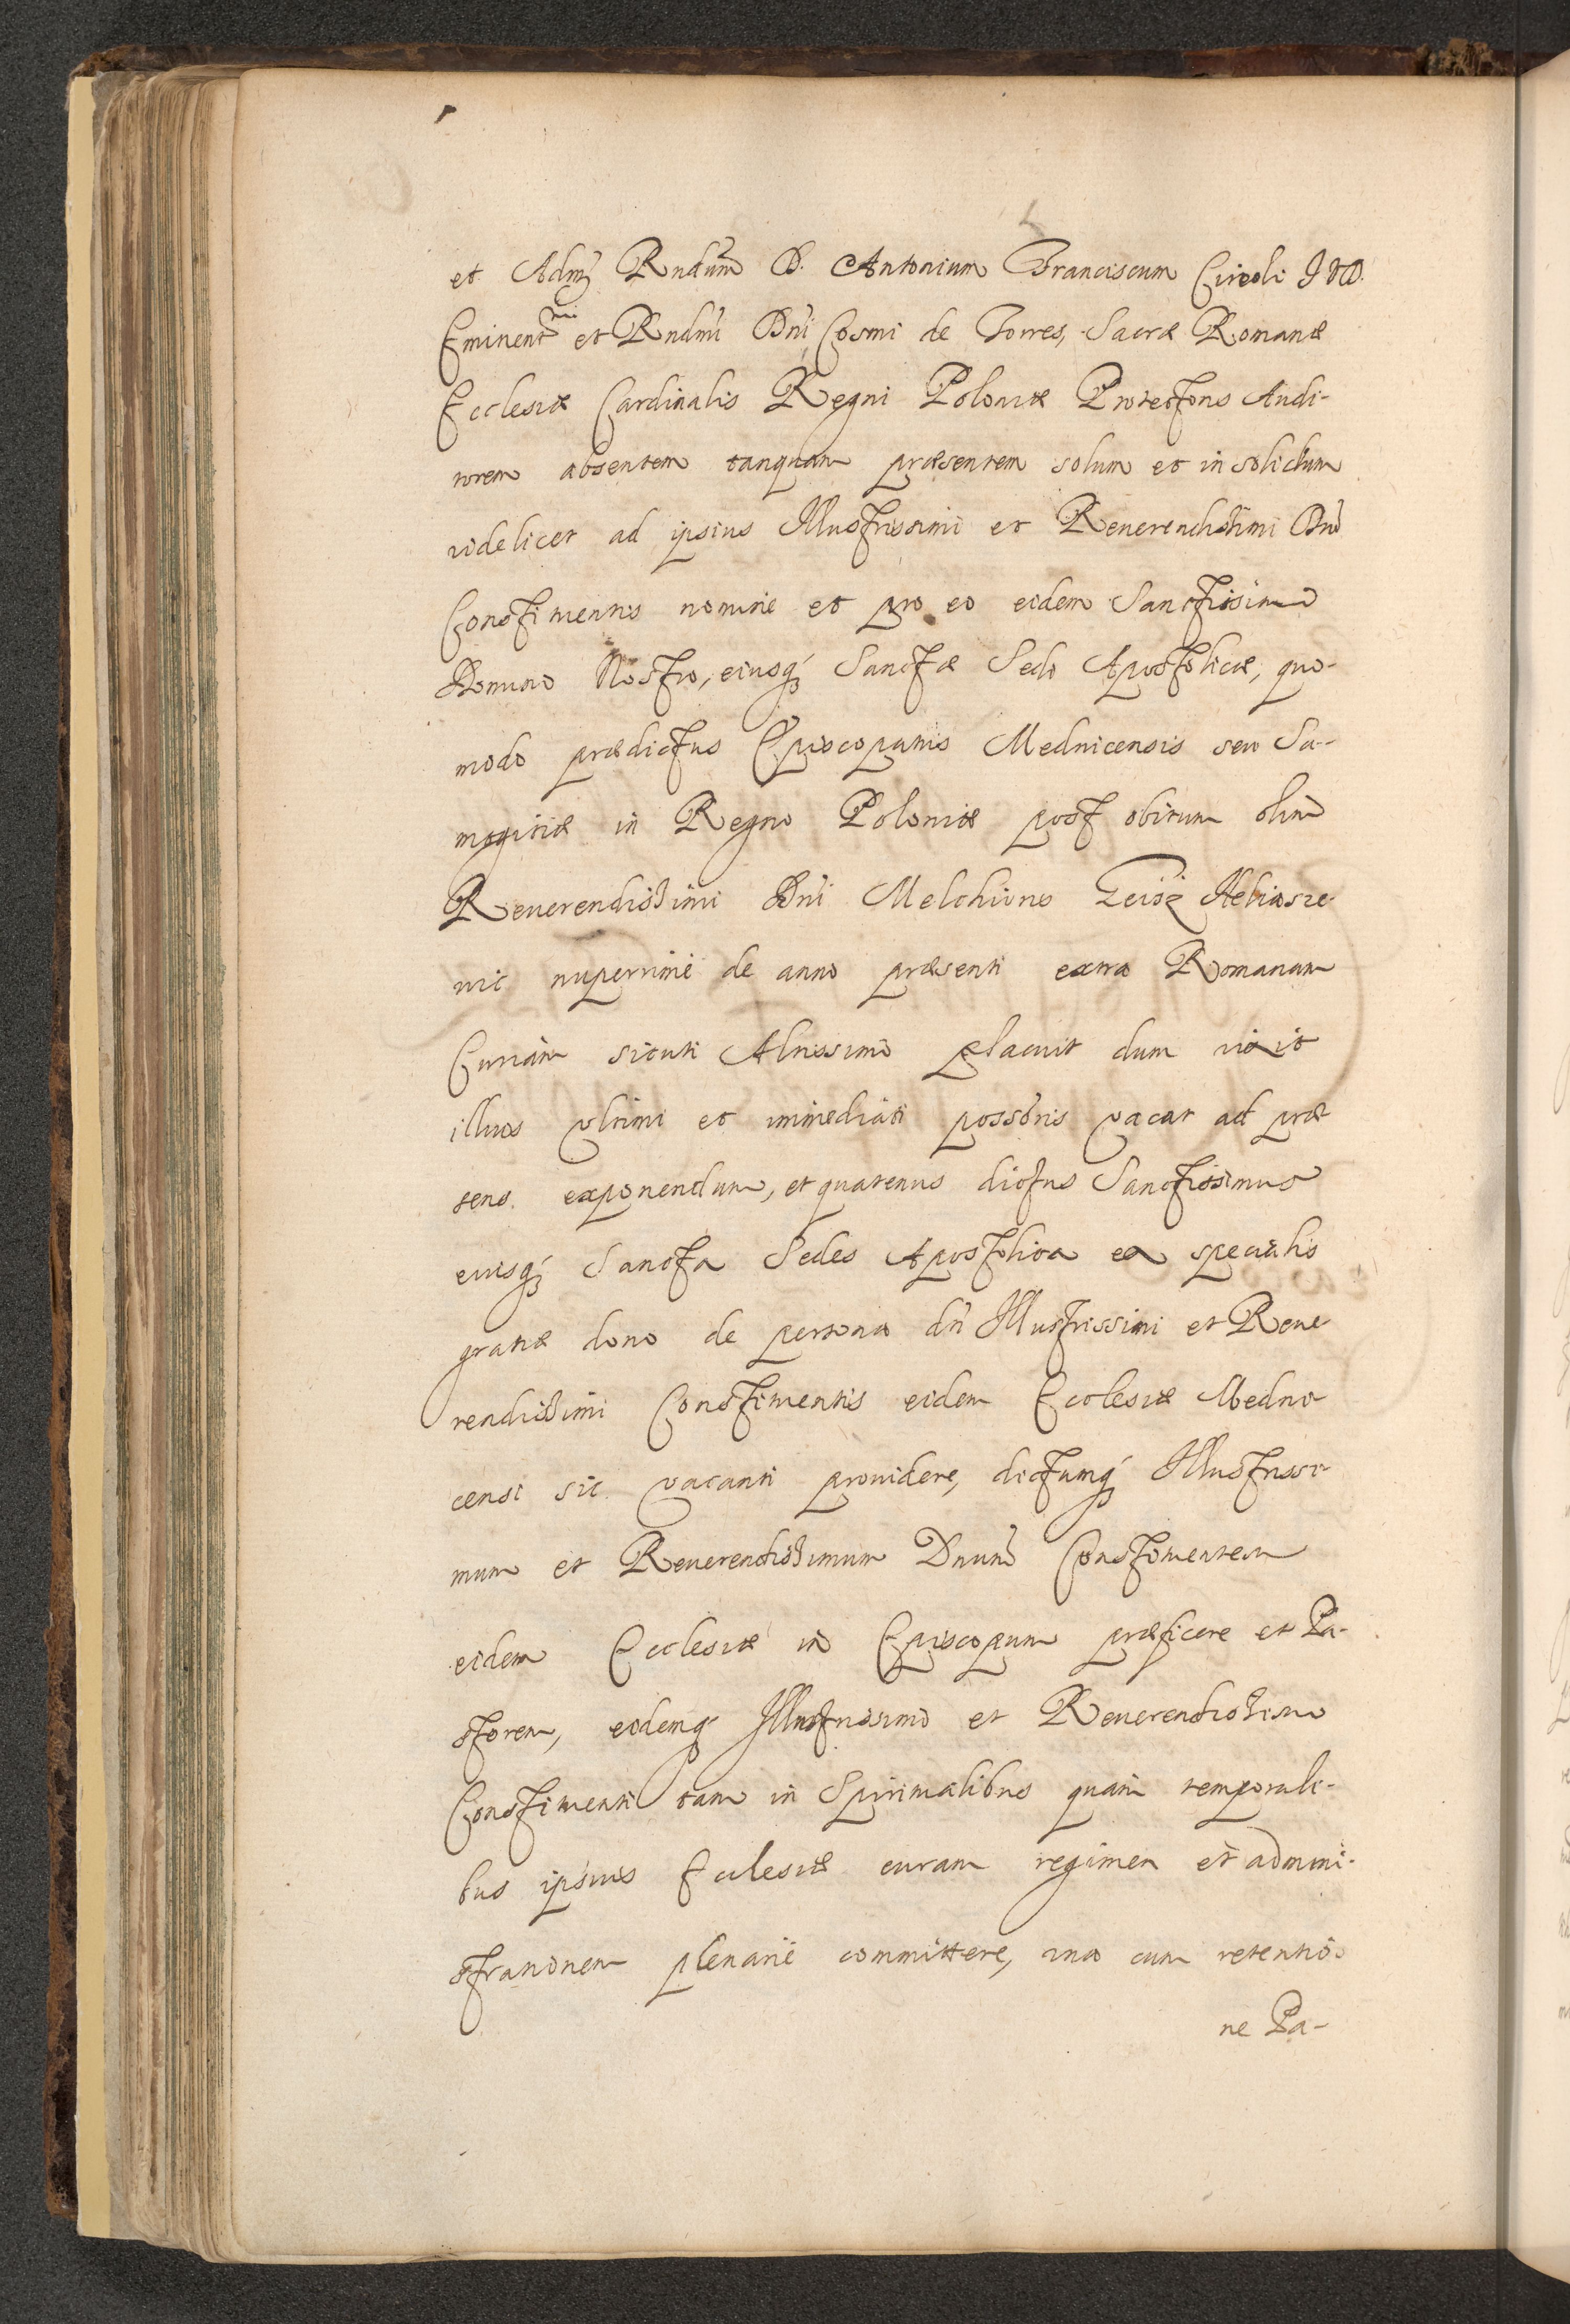 et Adm Rndum D. Antonium Franciscum Circoli IVD.
Eminentmi et Rndmi Dni Cosmi de Torres, Sacræ Romanæ
Ecclesiæ Cardinalis Regni Poloniæ Protectoris Audi-
torem absentem tanquam præsentem solum et in solidum
videlicet ad ipsius Illustrissimi et Reverendissimi Dni
Constituentis nomine et pro eo eidem Sanctissimo
Domino Nostro, eiusq; Sanctæ Sedi Apostolicæ, quo-
modo prædictus Episcopatus Mednicensis seu Sa-
mogitiæ in Regno Poloniæ post obitum olim
Reuerendissimi Dni Melchioris Geisz Heliasze
uit nuperrime de anno præsenti extra Romanam
Curiam sicuti Altissimo placuit dum vixit
illius vltimi et immediati possoris vacat ad præ
sens exponendum, et quatenus dictus Sanctissimus
eiusq; Sancta Sedes Apostolica ex specialis
gratiæ dono de persona dti Illustrissimi et Reue
rendissimi Constituentis eidem Ecclesiæ Medni
censi sic vacanti prouidere, dictumq; Illustrissi
mum et Reuerendissimum Dnum Constituentem
eidem Ecclesiæ in Episcopum præficere et Pa-
storem, eidemq; Illustrissimo et Reuerendissimo
Constituenti tam in Spiritualibus quam temporali-
bus ipsius Ecclesiæ curam regimen et admini-
strationem plenarie committere, una cum retentio
ne Pa-